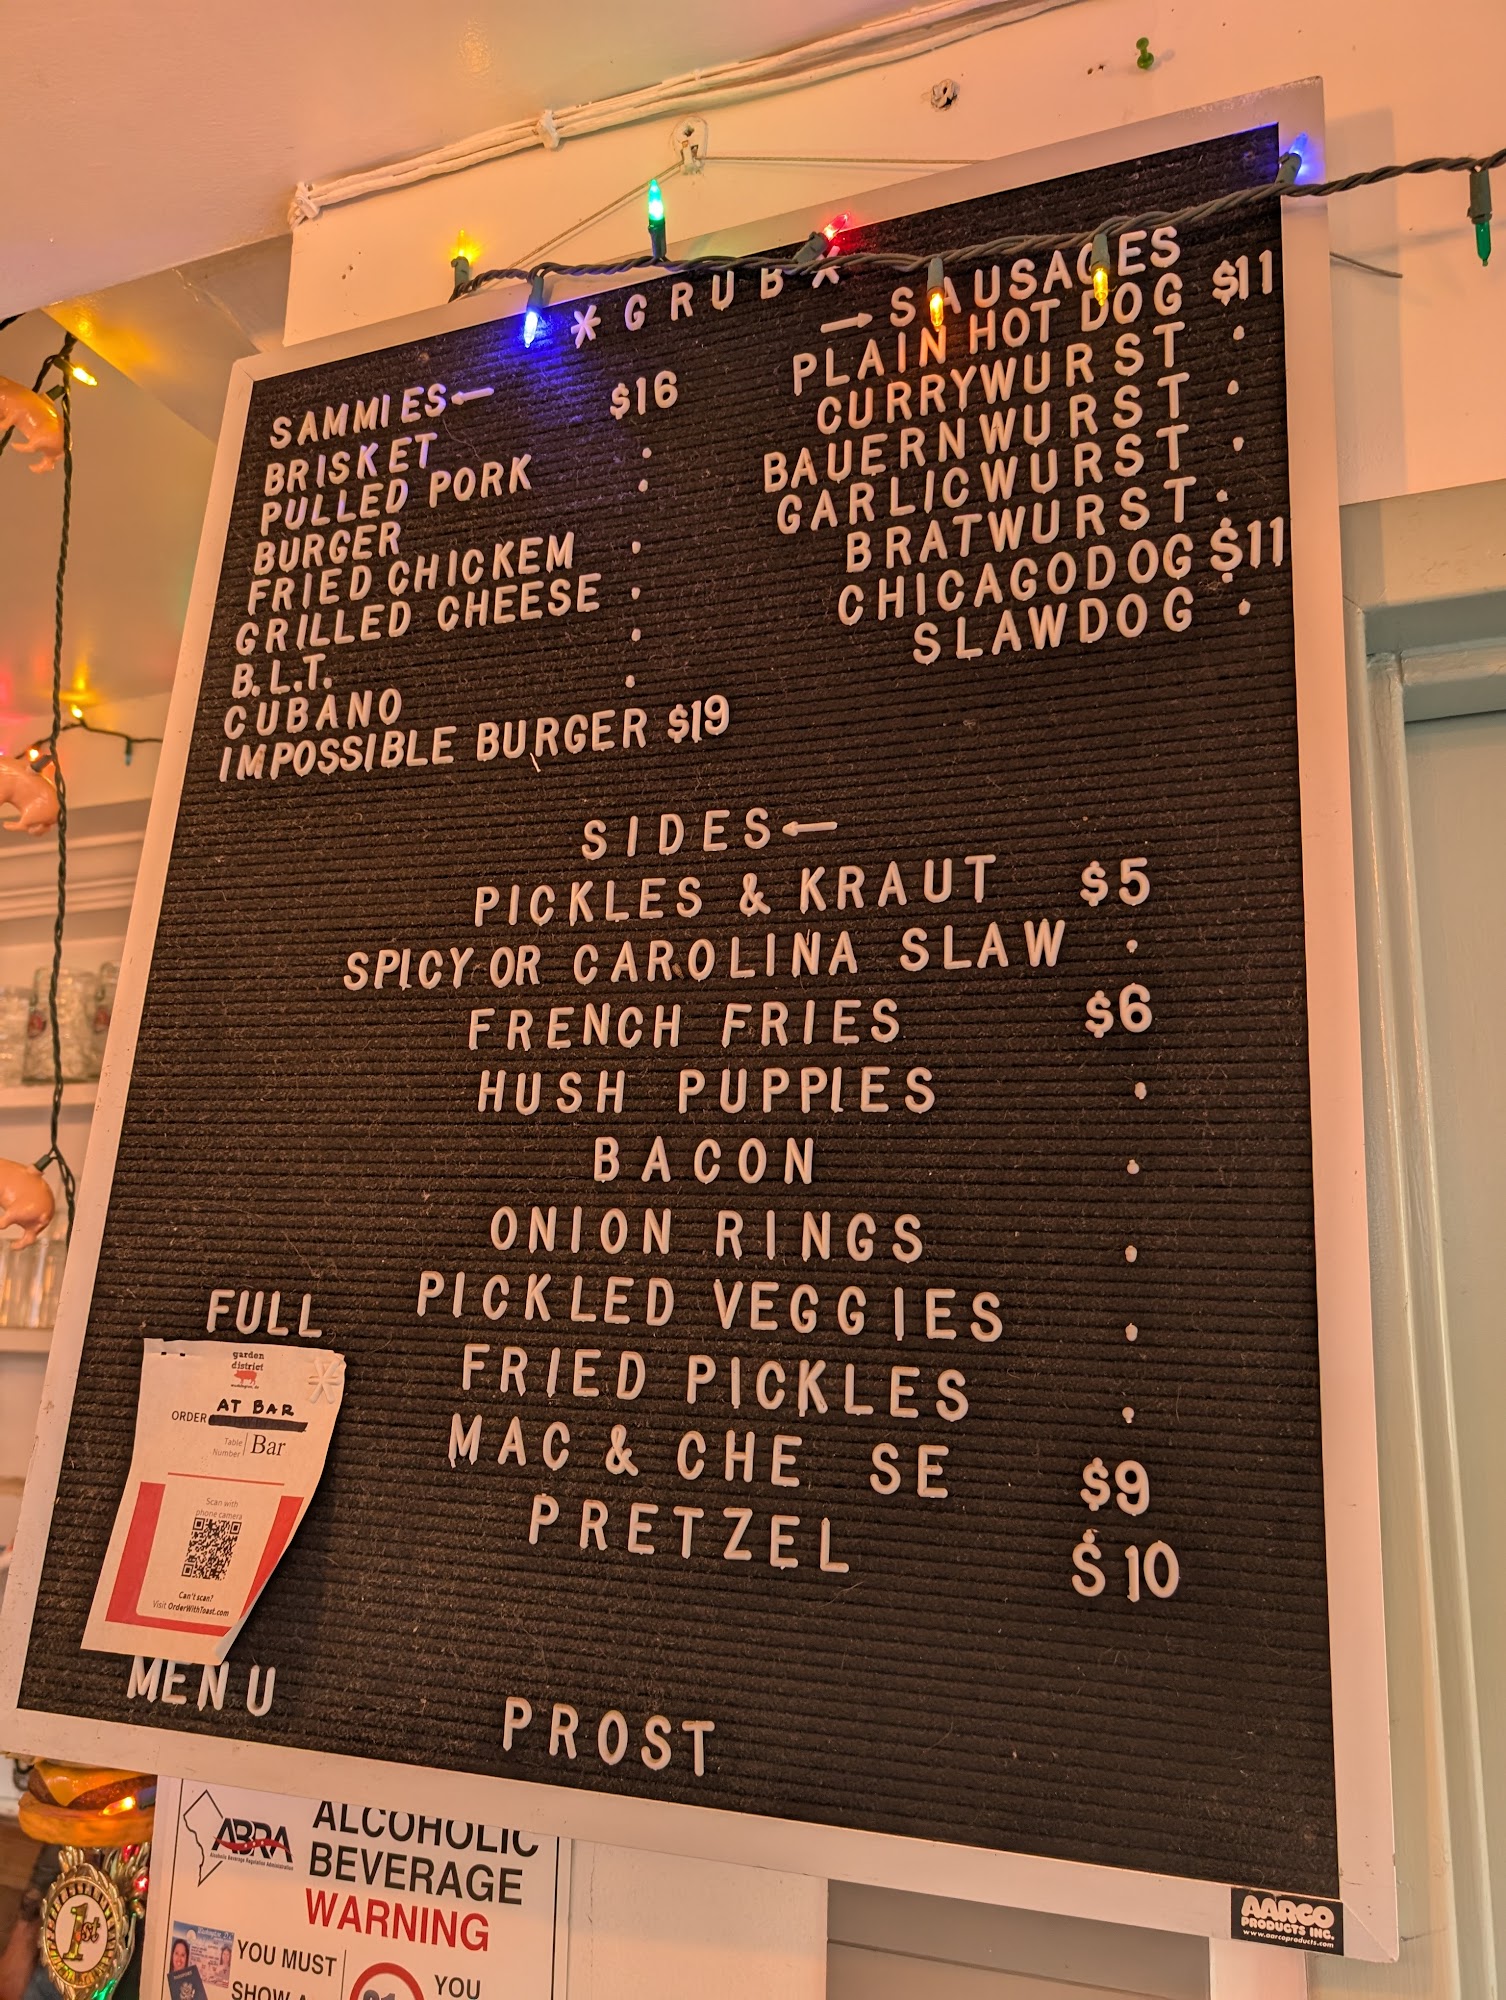 *GRUB*
SAMMIES← $16
BRISKET .
PULLED PORK .
BURGER
FRIED CHICKEM .
GRILLED CHEESE .
B.L.T. .
CUBANO .
IMPOSSIBLE BURGER $19
→SAUSAGES
PLAIN HOT DOG $11
CURRYWURST .
BAUERNWURST .
GARLICWURST .
BRATWURST .
CHICAGODOG $11
SLAWDOG .
SIDES←
PICKLES & KRAUT $5
SPICY OR CAROLINA SLAW .
FRENCH FRIES $6
HUSH PUPPIES .
BACON .
ONION RINGS .
PICKLED VEGGIES .
FRIED PICKLES .
MAC & CHE SE $9
PRETZEL $10
FULL
garden
district
AT BAR
ORDER
Table
Number
Bar
Scan with
phone camera
Can't scan?
Visit OrderWithToast.com
*
MENU
PROST
ABRA
Alcoholic Beverage Regulation Administration
ALCOHOLIC
BEVERAGE
WARNING
YOU MUST
SHOW
YOU
1st
AARCO
PRODUCTS INC.
www.aarcoproducts.com